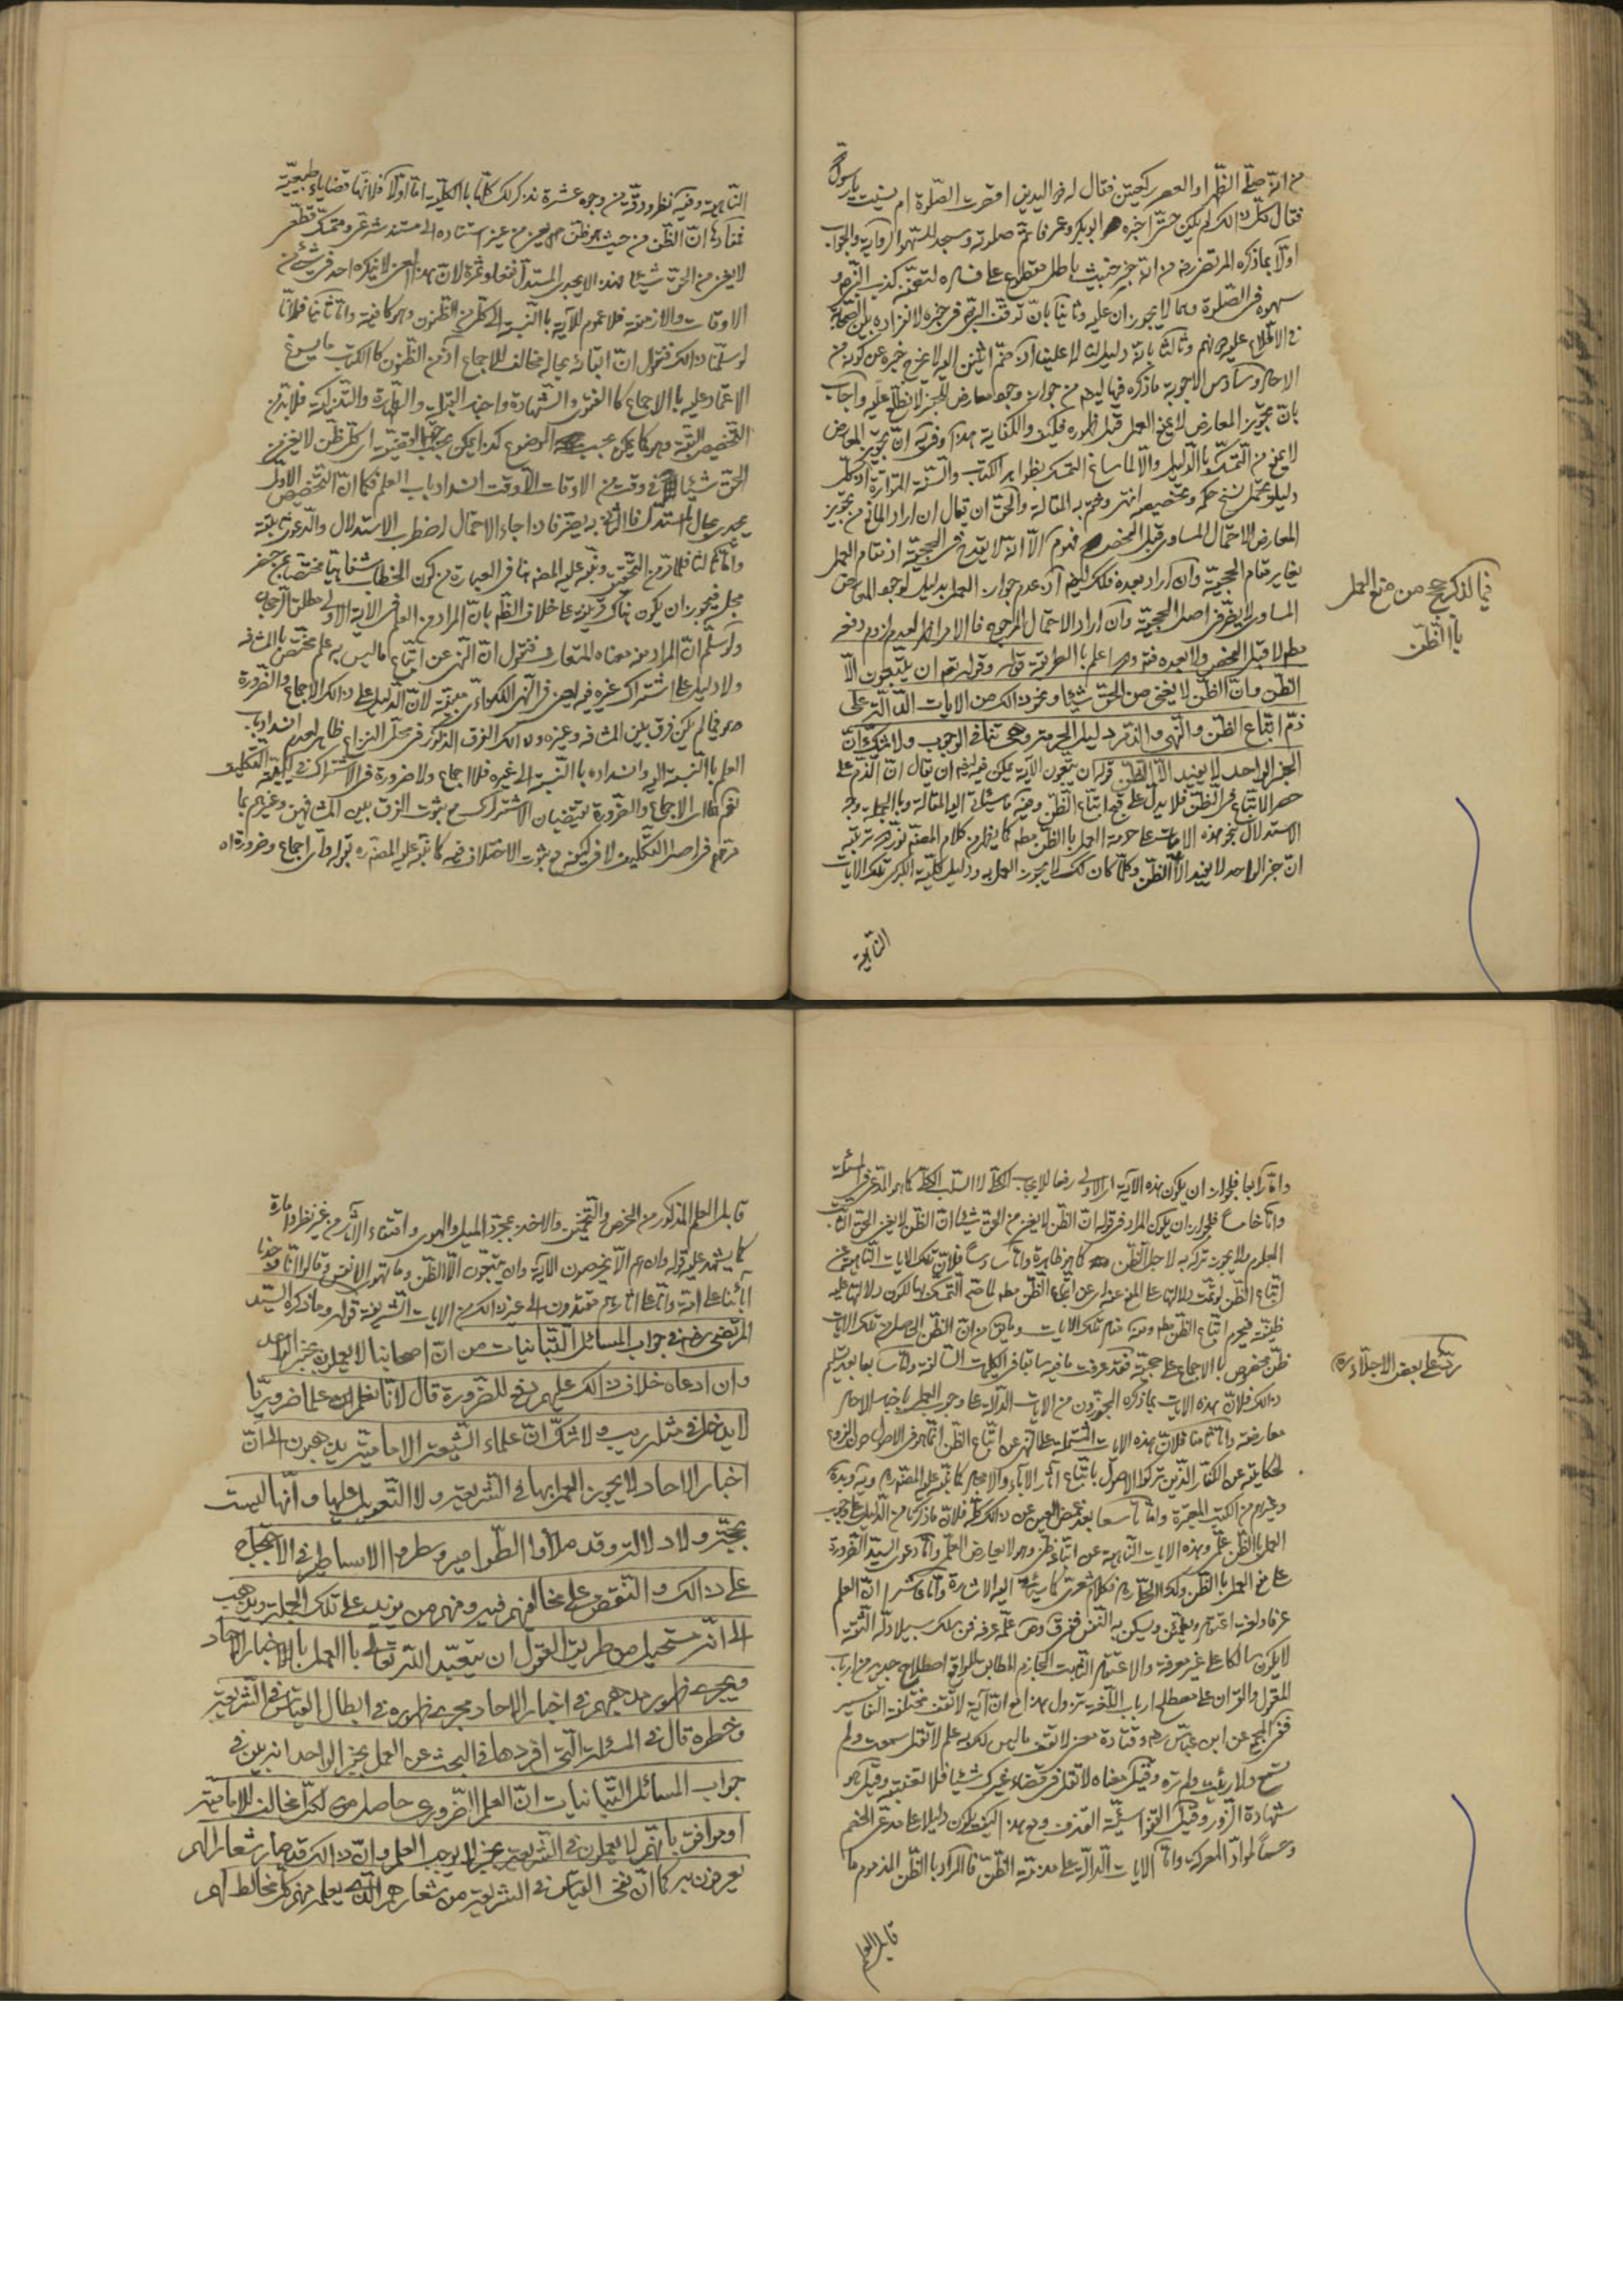 من انه صلّى الظهر او العصر ركعتين فقال له ذو اليدين اقصرت الصلوة ام نسيت يا رسول الله
فقال كل ذلك لم يكن حتى اخبره ابو بكر وعمر فاتم صلوته وسجد للسهو الرواية والجواب
اولا بما ذكره المرتضى رض من انه خبر خبيث باطل مقطوع على فساده لتضمنه كذب النبي ص و
سهوه في الصلوة وهما لا يجوزان عليه وثانيا بان توقف النبي ص في خبره لانفراده بين الصحابة
في الاطلاع عليه دونهم وثالثا بانه دليل لنا لا علينا اذ ضم اثنين اليه لا يخرج خبره عن كونه من
الاحاد وسادس الاجوبة ما ذكره فيما ليهم من جواز وجود معارض للخبر لا نطلع عليه واجاب
بان تجويز المعارض لا يمنع العمل قبل ظهوره فكيف والكفاية هذا وفيه ان تجويز المعارض
لا يمنع من التمسك بالدليل والا لما ساغ التمسك بظواهر الكتاب والسنة المتواترة اذ كل
دليل يحتمل نسخ حكمه وتخصيصه انتهى وختم به المقالة والحق ان يقال ان اراد المانع من تجويز
المعارض الاحتمال المساوي قبل الفحص فهو م الا انه لا يقدح في الحجية اذ مقام العمل
يغاير مقام الحجية وان اراد بعده فلك ليتم اذ عدم جواز العمل بدليل لوجود المعارض
المساوي لا يضر في اصل الحجية وان اراد الاحتمال المرجوح فالامر اظهر لعدم لزوم دفعه
مطلقا لا قبل الفحص ولا بعده فتدبر واعلم بالطريقة قوله وقوله تعم ان يتبعون الا
الظن وان الظن لا يغني من الحق شيئا ونحو ذلك من الايات الدالة على
ذم اتباع الظن والنهي والذم دليل الحرمة وهي تنافي الوجوب ولا شك ان
الخبر الواحد لا يفيد الا الظن قوله ان يتبعون الاية يمكن فيه ان يقال ان الذم على
حصر الاتباع في الظن فلا يدل على قبح اتباع الظن وفيه ما سيأتي اليه المقالة وبالجملة وجه
الاستدلال بنحو هذه الايات على حرمة العمل بالظن مطلقا كما يظهر من كلام المصنف نور مرقده ترتيبه
ان خبر الواحد لا يفيد الا الظن وكلما كان كذلك لا يجوز العمل به ودليل كلية الكبرى تلك الايات
الناهية
فيما ذكر حجج من منع العمل
بالظن
الناهية وفيه نظر ودقة من وجوه عشرة نذكر لك كلها بالكلية اما اولا فلانها قضايا طبيعية
مفادها ان الظن من حيث هو ظن يعني من غير استناده الى مستند شرعي ومتمسك قطعي
لا يغني من الحق شيئا وهذا لا يجدي المستدل نفعا وثمرة لان هذا المعنى لا ينكره احد في شيء من
الاوقات والازمنة فلا عموم للاية بالنسبة الى كل من الظنون وهو كاف فيه واما ثانيا فلانا
لو سلمنا ذلك فنقول ان ابقائه بحاله مخالف للاجماع اذ من الظنون كالكرب ما يسوغ
الاعتماد عليه بالاجماع كالفتوى والشهادة واخبار القبلة والطهارة والتذكية فلا بد من
التخصيص البتة وهو كما يمكن بحسب الموضوع كذا يمكن بحسب القضية اي كل ظن لا يغني من
الحق شيئا في وقت من الاوقات الا وقت انسداد باب العلم فكما ان التخصيص الاول
يجدي بحال المستدل فالثاني به يضر فاذا جاء الاحتمال اضطرب الاستدلال والدعوى باقية
واما ثالثا فلا بد من التحقيق ونبه عليه المصنف في العبارة من كون الخطاب شفاهيا مختصا بمن حضر
مجلسه فيجوز ان يكون هناك قرينة على خلاف الظاهر بان المراد من العلم في الاية الاولى مطلق الرجحان
ولو سلم ان المراد منه معناه المتعارف فنقول ان النهي عن اتباع ما ليس به علم مختص بالمشافه
ولا دليل على اشتراك غيره فيه يعني في النهي للكواء مبقية لان الدليل على ذلك الاجماع والضرورة
هو فيما لم يكن فرق بين المشافه وغيره وذلك الفرق المذكور في محل النزاع ظاهر لعدم انسداد باب
العلم بالنسبة اليه وانسداده بالنسبة الى غيره فلا اجماع ولا ضرورة في الاشتراك في كيفية التكليف
نعم هذان الاجماع والضرورة يقتضيان الاشتراك مع ثبوت الفرق بين المشافهين وغيرهم بما
مر تقم في اصل التكليف لا في كيفيته مع ثبوت الاختلاف فيه كما نبه عليه المصنف ره بقوله واي اجماع وضرورة اه
واما رابعا فلجواز ان يكون هذه الاية اي الاولى رفعا للايجاب الكلي لا السلب الكلي كما هو المدعى في المسئلة
واما خامسا فلجواز ان يكون المراد في قوله ان الظن لا يغني من الحق شيئا ان الظن لا يغني الحق الثابت
المعلوم ولا يجوز تركه لاجل الظن كما هو ظاهره واما سادسا فلان تلك الايات الناهية عن
اتباع الظن لو تمت دلالتها على المنع عنه اي عن اتباع الظن مطلقا لما صح التمسك بها لكون دلالتها عليه
ظنية فيحرم اتباع الظن مطلقا ومنه تلك الايات وما يق من ان الظن الحاصل من تلك الايات
ظن مخصوص بالاجماع على حجيته فقد عرفت ما فيه سابقا في الكلمات السالفة واما سابعا بعد تسليم
ذلك فلان هذه الايات بما ذكره المجوزون من الايات الدالة على وجوب العمل باخبار الاحاد
معارضة واما ثامنا فلان هذه الايات المشتملة على النهي عن اتباع الظن انما هو في الاصول دون الفروع
لحكايته عن الكفار الذين تركوا الاصول باتباع اثار الاباء والاجداد كما نبه عليه المصنف ره ويؤيده
وغيرها من الكتب المعتبرة واما تاسعا بعد غمض العين عن ذلك كله فلان ما ذكرنا من الدليل على وجوب
العمل بالظن علمي وهذه الايات الناهية عن اتباعه ظني وهو لا يعارض العلم واما دعوى السيد الضرورة
على منع العمل بالظن ولذلك في كلامه شعر كما سيأتي اليه الاشارة واما عاشرا ان العلم
عرفا ولغة اعتقاد ويطمئن ويسكن به النفس ففرق وهو علم عرفه فمن ملك سبيلا دلّه الثقة
لا يكون سالكا على غير معرفة والاعتقاد الثابت الجازم المطابق للواقع اصطلاح جديد من ارباب
المعقول والقران على مصطلح ارباب اللغة يتنزل هذا مع ان اية لا تقف مختلفة التفاسير
ففي المجمع عن ابن عباس رض وقتادة معنى لا تقف ما ليس لك به علم لا تقل سمعت ولم
تسمع ولا رئيت ولم تره وقيل معناه لا تقل في قضاء غيرك شيئا فلا تغتبه وقيل هو
شهادة الزور وقيل القفو السيئة القذف ومع هذا كيف يكون دليلا على مدعى الخصم
وعمدا لمواد المعركة واما الايات الدالة على مذمة الظن فالمراد بالظن المذموم ما
قابل العلم
رد على بعض الاجلاء ره
قابل العلم المذكور من الخرص والتخمين والاخذ بمجرد الميل والهوى واقتفاء الاثار من غير نظر وامارة
كما يشهد عليه قوله وان هم الا يخرصون الاية وان يتبعون الا الظن وما تهوى الانفس وقالوا انا وجدنا
ابائنا على امة وانا على اثارهم مقتدون الى غير ذلك من الايات الشريفة قوله وما ذكره السيد
المرتضى رض في جواب المسائل التبانيات من ان اصحابنا لا يعملون بخبر الواحد
وان ادعاه خلاف ذلك عليهم دفع للضرورة قال لانا نعلم علما ضروريا
لا يدخل في مثله ريب ولا شك ان علماء الشيعة الامامية يذهبون الى ان
اخبار الاحاد لا يجوز العمل بها في الشريعة ولا التعويل عليها وانها ليست
بحجة ولا دلالة وقد ملأوا الطوامير وسطروا الاساطير في الاحتجاج
على ذلك والنقض على مخالفيهم فيه ومنهم من يزيد على تلك الجملة ويذهب
الى انه مستحيل من طريق العقول ان يتعبد الله تعالى بالعمل بالاخبار الاحاد
ويجري ظهور مذهبهم في اخبار الاحاد مجرى ظهوره في ابطال القياس في الشريعة
وخطره قال في المسئلة التي افردها في البحث عن العمل بخبر الواحد انه بين في
جواب المسائل التبانيات ان العلم الضروري حاصل من لكل مخالف للامامية
او موافق بانهم لا يعملون في الشريعة بخبر لا يوجب العلم وان ذلك قد صار شعارا لهم
يعرفون به كما ان نفي القياس في الشريعة من شعارهم الذي يعلمه منهم كل مخالط لهم